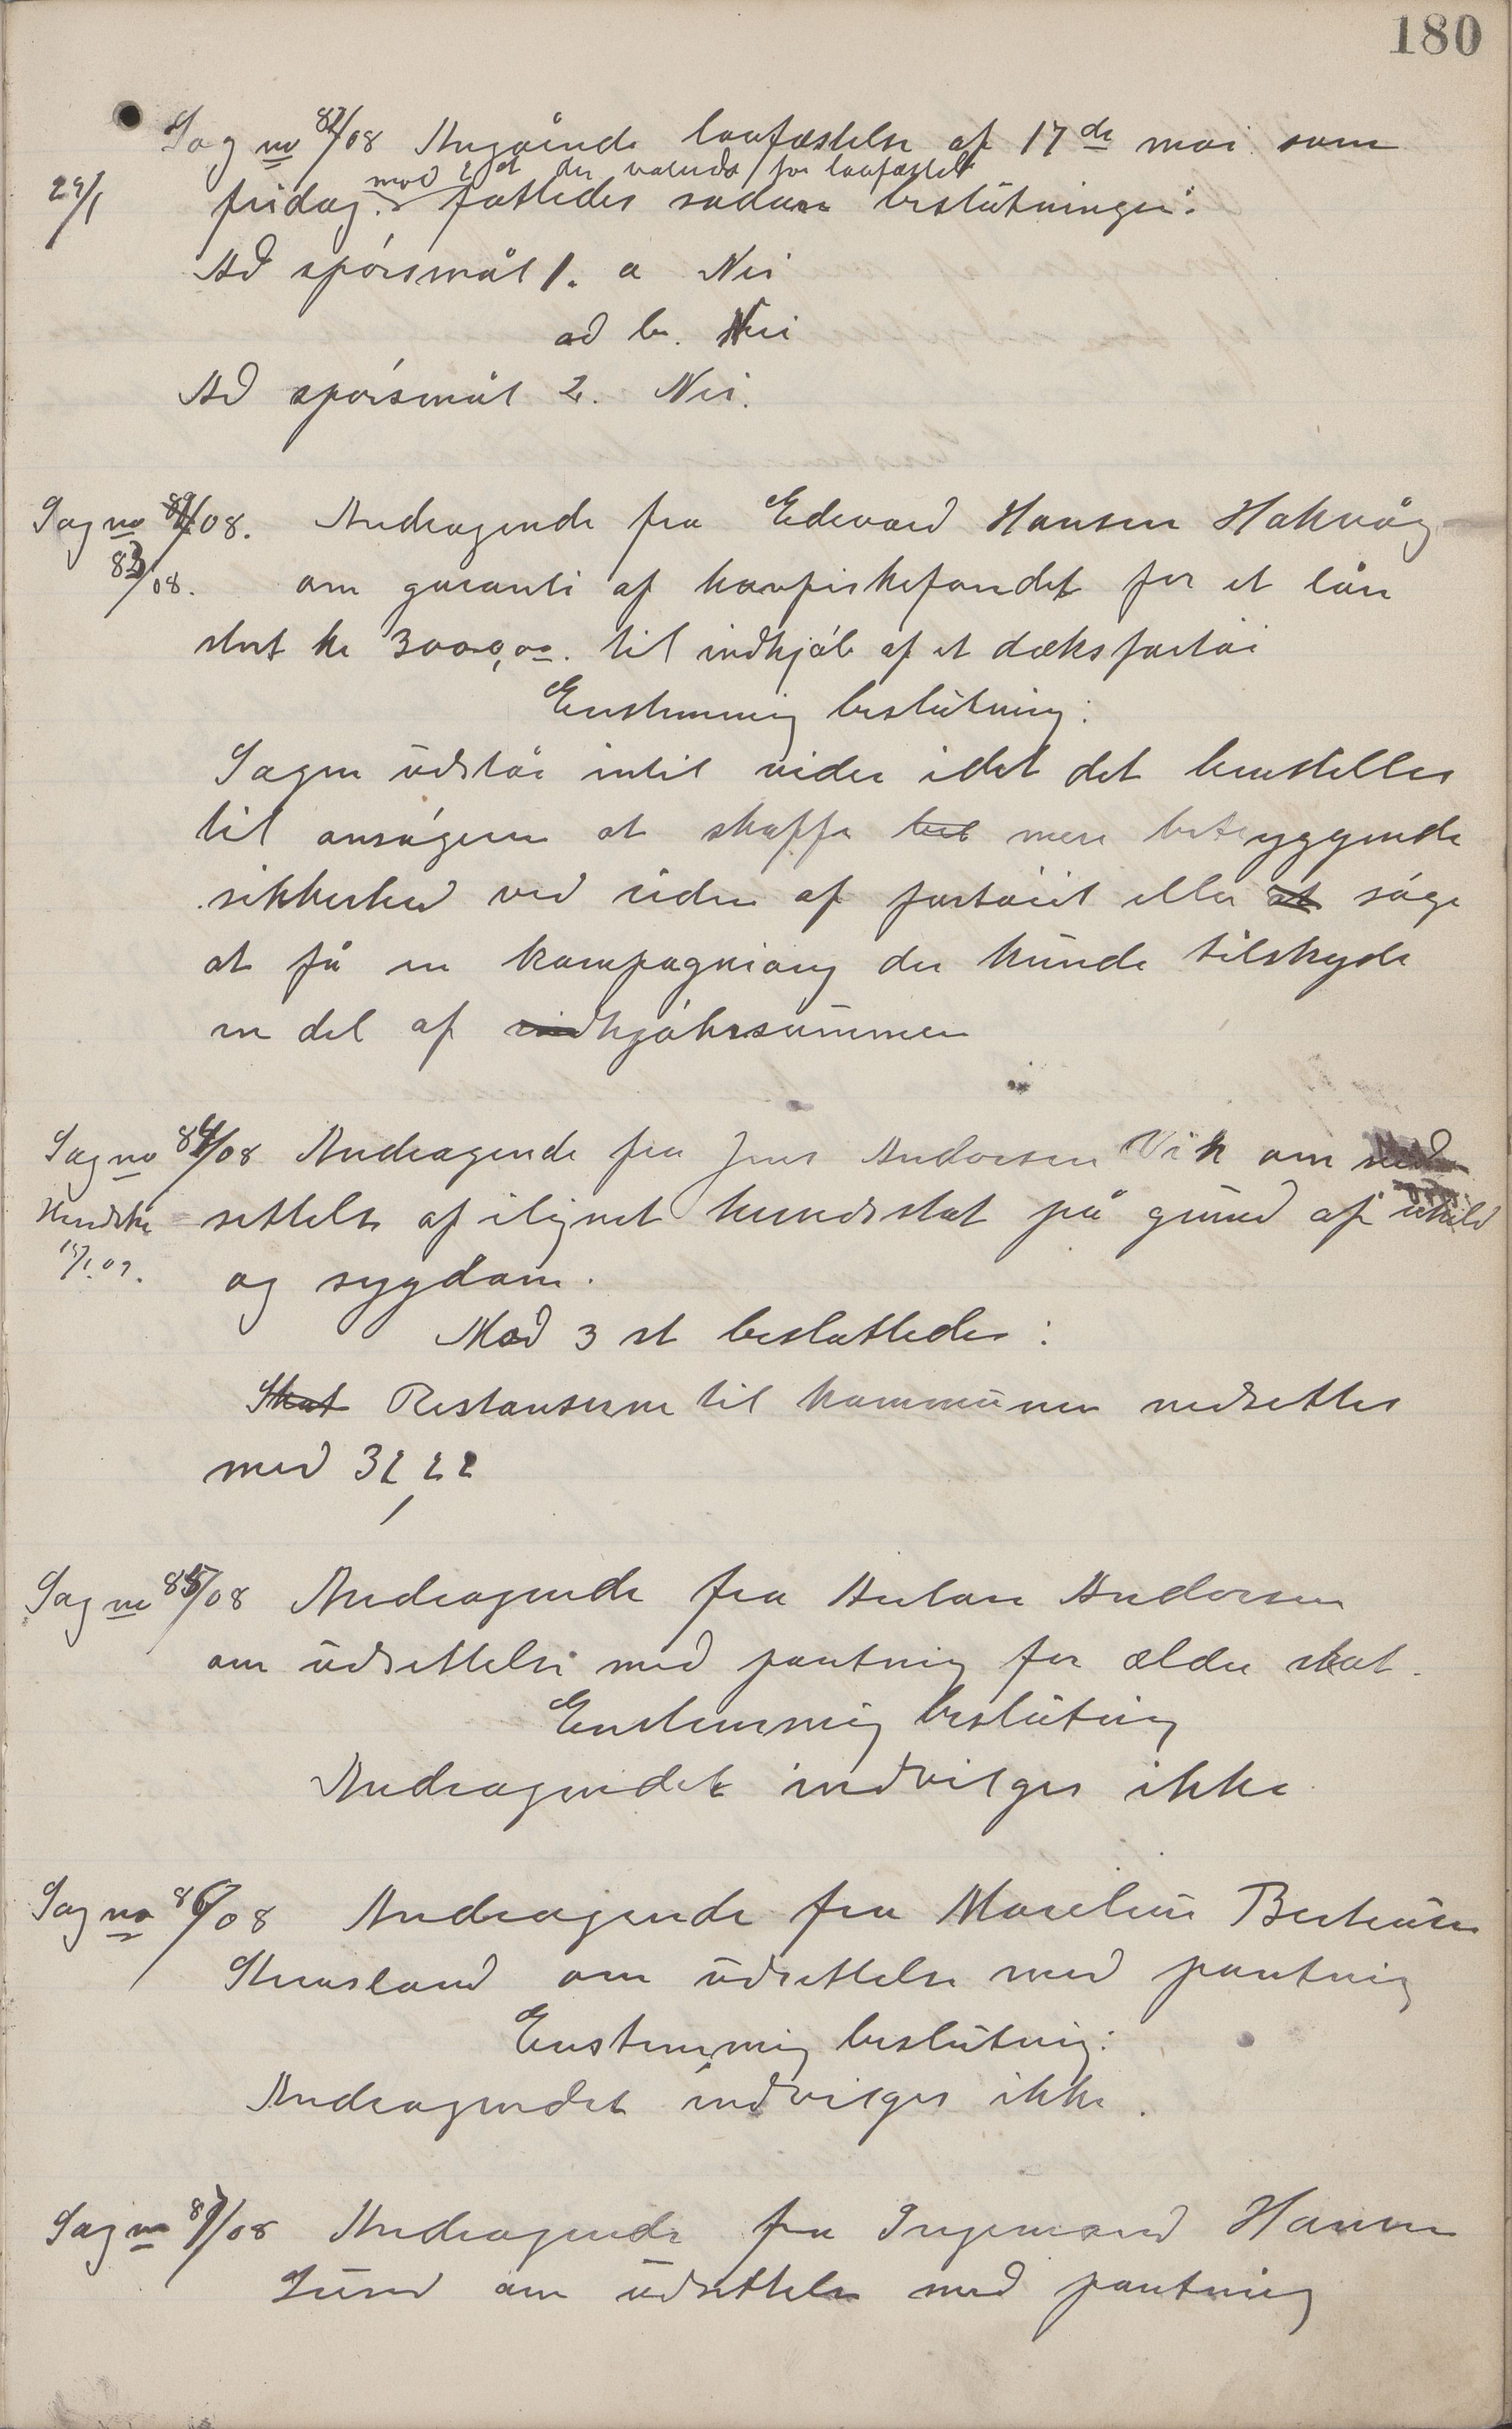 180
Sag no 82/08 Angående lovfæstelse af 17de mai som
mod 2 st der voterede for lovfæstelse
29/1 fridag. fattedes sådan beslutninger:
Ad spørsmål 1. a Nei
ad b. Nei
Ad spørsmål 2. Nei.
Sag no /08. Andragende fra Edevard Hansen Hakvåg
83/08. om garanti af havfiskefondet for et lån
stort kr 3000,00. til indkjøb af et dæksfartøi
Enstemmig beslutning:
Sagen udstår intil videre idet det henstelles
til ansøgeren at skaffe mere betryggende
sikkerhed ved siden af fartøiet eller at søge
at få en kompagniong der kunde tilskyde
en del af indkjøbssummen
Sag no 84/08 Andragende fra Jens Andersen Vik om ned
Hendska settelse af ilignet herredsskat på grund af uheld
15/1.09. og sygdom.
Mod 3 st besluttedes:
Skat Restanserne til kommunen nedsettes
med 32,22
Sag no 85/08 Andragende fra Anton Andorsen
om udsettelse med pantning for ældre skat.
Enstemmig beslutning
Andragendet indvilges ikke
Sag no 86/08 Andragende fra Marelius Berteusen
om udsettelse med pantning
Enstemmig beslutning:
Andragendet indvilges ikke.
Sag no 87/08 Andragende fra Ingemard Hansen
Sund om udsettelse med pantning